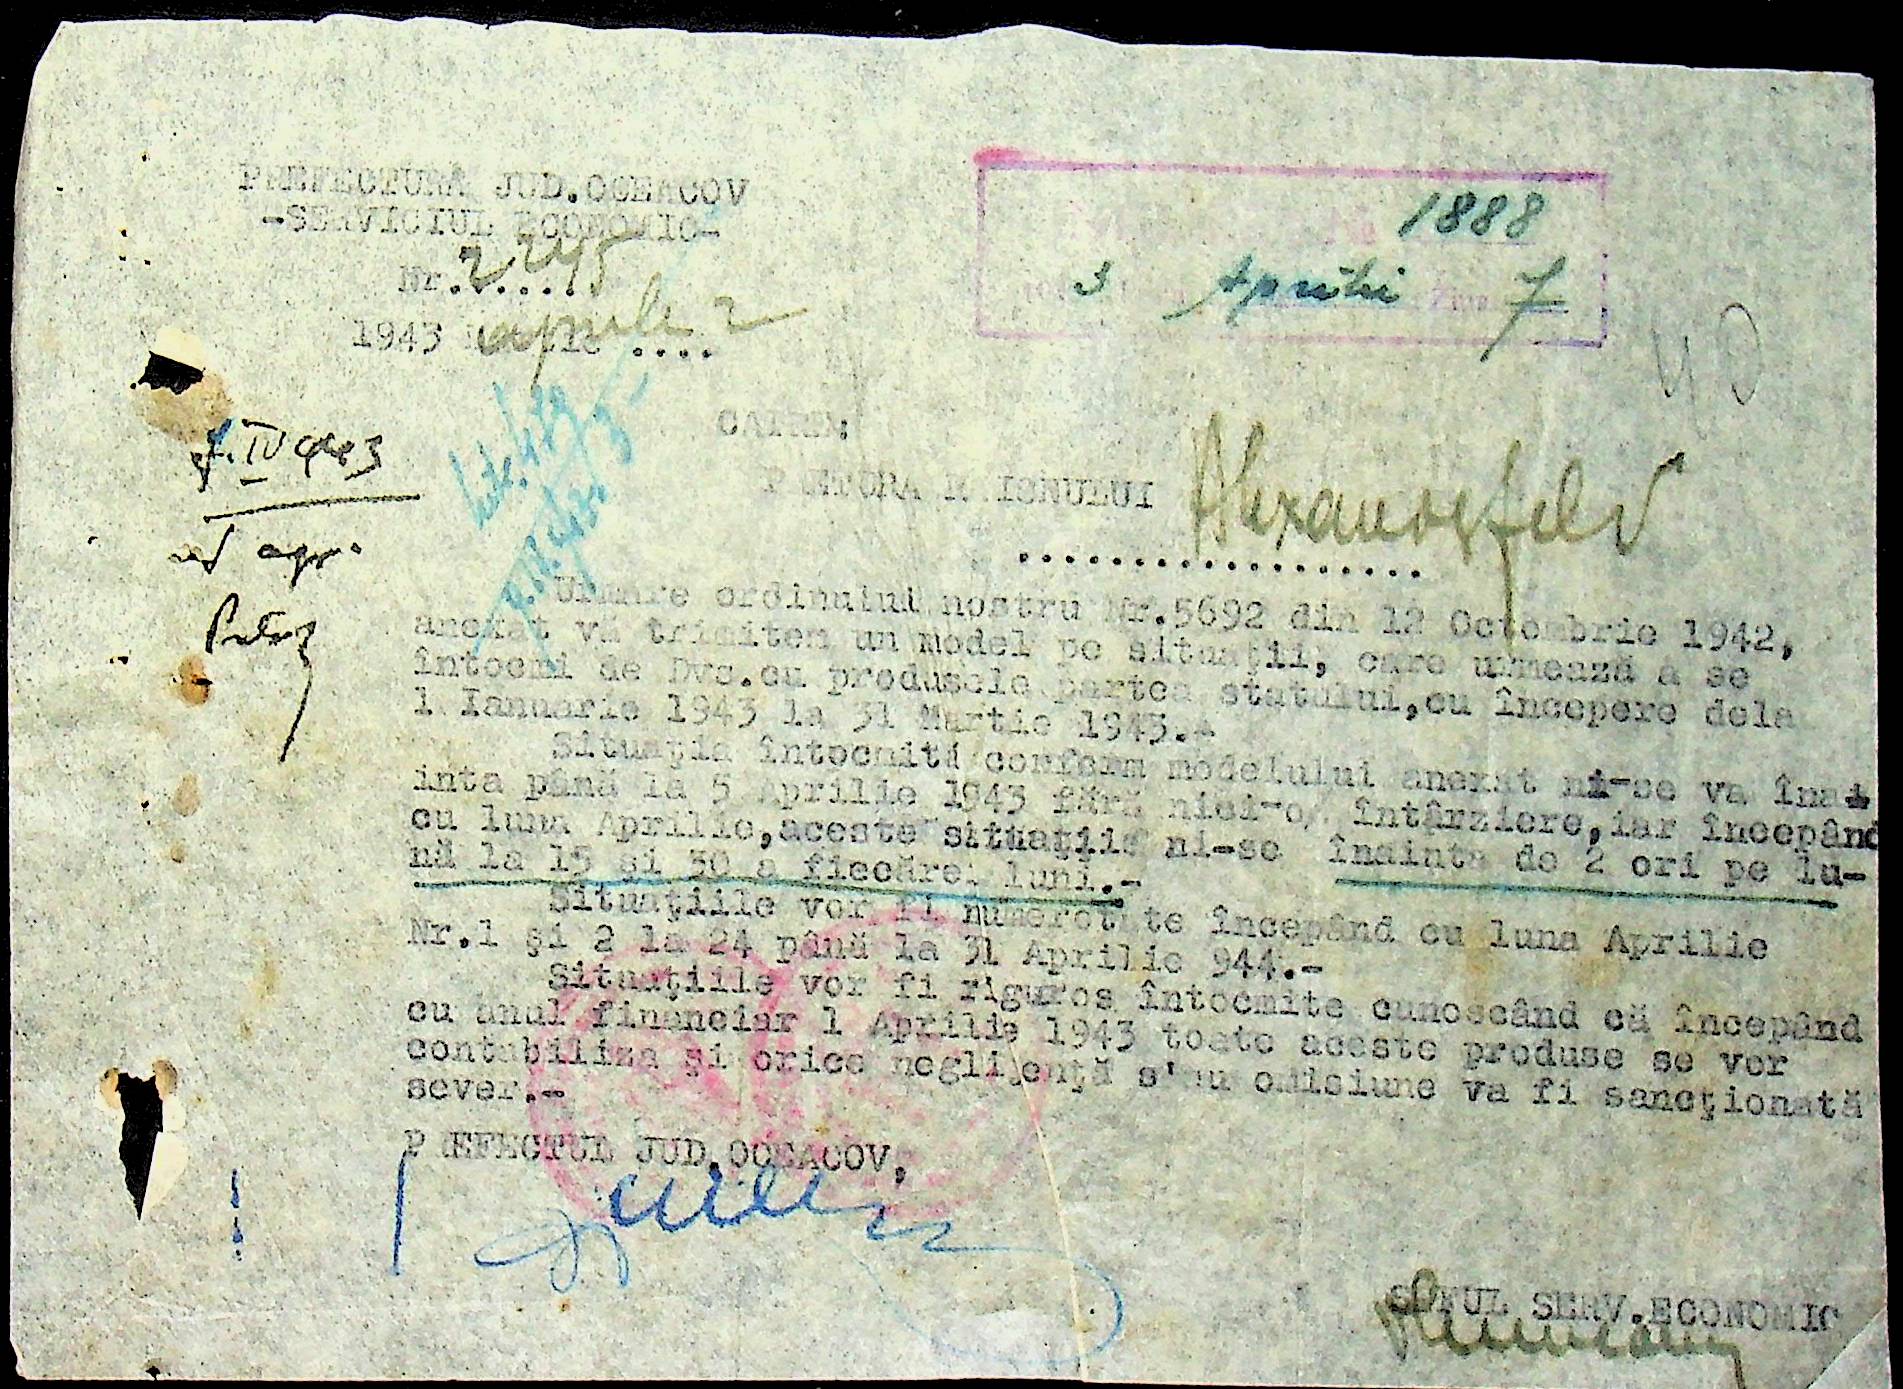 PREFECTURA JUD.OCEACOV
-SERVICIUL ECONOMIC-
Nr. 2245
1943 aprilie 2
No 1888
3 Aprilie 7
CATRE:
PRETURA RAIONULUI Alexanderfeld
Urmare ordinului nostru Nr.5692 din 12 Octombrie 1942,
anexat vă trimitem un model pe situaţii, care urmează a se
întocmi de Dvs.cu produsele partea statului,cu începere dela
1 Ianuarie 1943 la 31 Martie 1943.-
Situaţia întocmită conform modelului anexat ni-se va înai
inta până la 5 Aprilie 1943 fără nici-o întârziere,iar începând
cu luna Aprilie,aceste situaţii ni-se înainta de 2 ori pe lu-
nă la 15 şi 30 a fiecărei luni.-
Situaţiile vor fi numerotate începând cu luna Aprilie
Nr.1 şi 2 la 24 până la 31 Aprilie 944.-
Situaţiile vor fi riguros întocmite cunoscând că începând
cu anul financiar 1 Aprilie 1943 toate aceste produse se vor
contabiliza şi orice neglijenţă s'au omisiune va fi sancţionată
sever.-
PREFECTUL JUD.OCEACOV,
SEFUL SERV.ECONOMIC